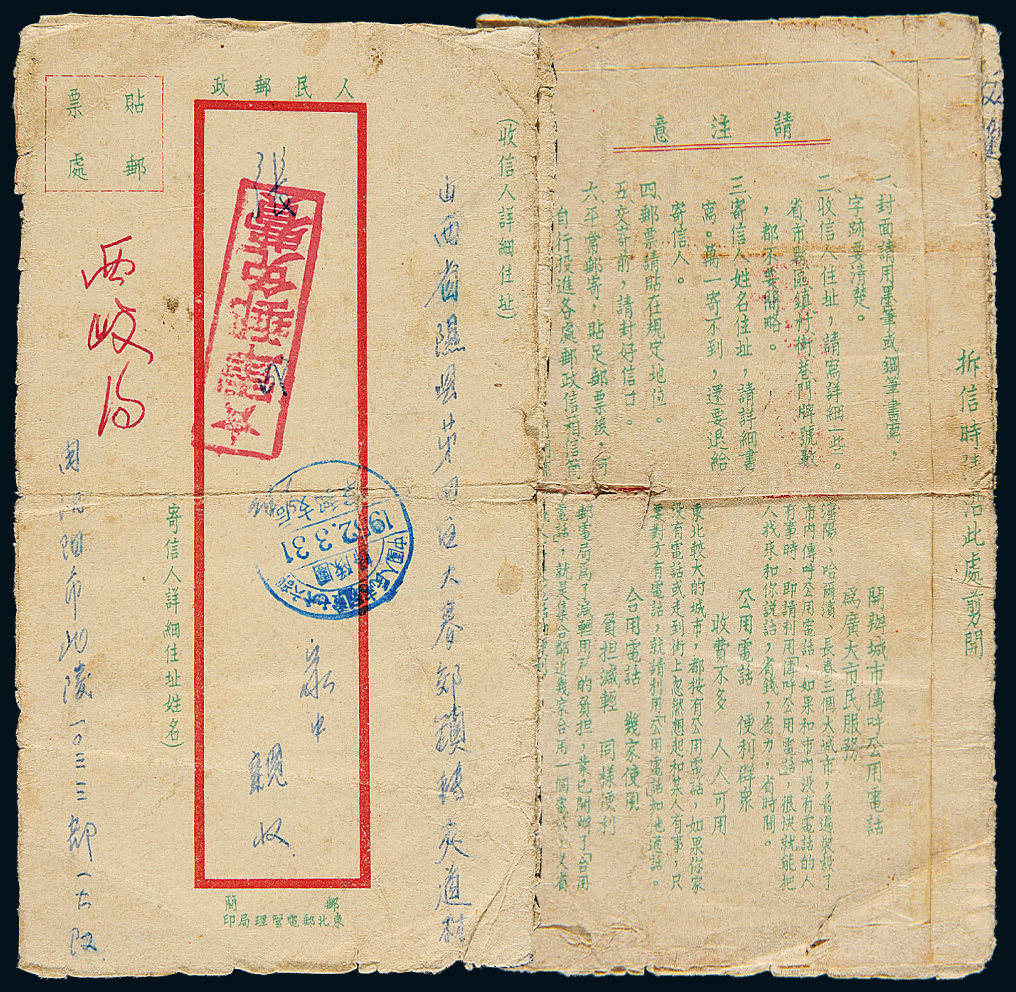 人民郵政
貼郵
票處
(收信人詳細住址)
山西省隰县第四区大麦郊镇转交道村
張
家中
親收
軍郵免費
1952.3.31
西岐局
(寄信人詳細住址姓名)
北陵一〇三三部一七队
郵簡
東北郵電管理局印
請注意
一封面請用墨筆或鋼筆書寫，
字跡要清楚。
二收信人住址，請寫詳細一些。
省市縣區鎮村街巷門牌號數
，都不要簡略。
三寄信人姓名住址，請詳細書
寫。萬一寄不到，還要退給
寄信人。
四郵票請貼在規定地位。
五交寄前，請封好信口。
六平常郵寄，貼足郵票後。可
自行投進各處郵政信箱信筒
拆信時請沿此處剪開
開辦城市傳呼公用電話
爲廣大市民服務
瀋陽、哈爾濱、長春三個大城市，普遍裝設了
市內傳呼公用電話，如果和市內沒有電話的人
有事時，即請利用傳呼公用電話，很快就能把
人找來和你說話，省錢，省力，省時間。
公用電話　便利群眾
收費不多　人人可用
東北較大的城市，都按有公用電話，如果你家
沒有電話或走到街上忽然想起和某人有事，只
要對方有電話，就請利用「公用電話」和他通話。
合用電話　幾家使用
負担減輕　同樣便利
郵電局爲了減輕用戶的負担，業已開辦了「合用
電話」，就是集合鄰近幾家合用一個電話，